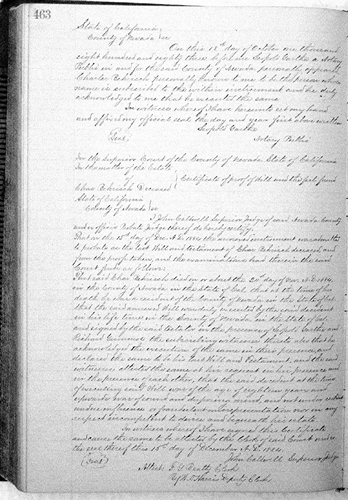 463
State of California
County of Nevada } ss
On this 15th day of October one thousand
eight hundred and eighty three before me Leopold Garthe a Notary
Public in and for the said County of Nevada personally appeared
Charles personally known to me to be the person whose
name is subscribed to the within instrument and he duly
acknowledged to me that he executed the same
In witness whereof I have hereunto set my hand
and affixed my official seal the day and year first above written
Leopold Garthe
Seal Notary Public
In the Superior Court of the County of Nevada State of California
In the matter of the Estate
of } Certificate of proof of Will and the facts found
Chas Deceased
State of California
County of Nevada } ss
I John Caldwell Superior Judge of said Nevada County
and Judge thereof do hereby certify:
That on the 15th day of Dec A.D. 1884 the annexed instrument was admitted
to probate as the last Will and testament of Chas deceased, and
from the proofs taken, and the examination had therein the said
Court finds as follows:
That said Chas died on or about the day of Nov A.D. 1884
in the County of Nevada in the State of Cal, that at the time of his
death he was a resident of the County of Nevada in the State of Cal
that the said annexed Will was duly executed by the said decedent
in his life time in the County of Nevada in the State of Cal,
and signed by the said testator in the presence of Leopold Garthe and
Richard the subscribing witnesses thereto also that he
acknowledged the execution of the same in their presence, and
declared the same to be his last Will and Testament, and the said
witnesses attested the same at his request in his presence and
in the presence of each other, that the said decedent at the time
of executing said Will was of the age of eighteen years and
upwards was of sound and disposing mind, and not under restraint
undue influence or fraudulent misrepresentation nor in any
respect incompetent to devise and bequeath his estate
In witness whereof I have signed this Certificate
and cause the same to be attested by the Clerk of said Court under
the seal thereof this 15th day of December A.D. 1884
John Caldwell Superior Judge
(Seal) Attest: F G Beatty Clerk
By Harris Deputy Clerk